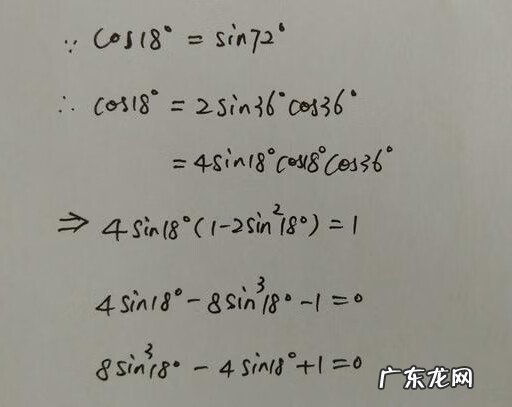 ∵ cos18° = sin72°
∴ cos18° = 2sin36°cos36°
= 4sin18°cos18°cos36°
⇒ 4sin18°(1-2sin²18°) = 1
4sin18° - 8sin³18° - 1 = 0
8sin³18° - 4sin18° + 1 = 0
广东龙网